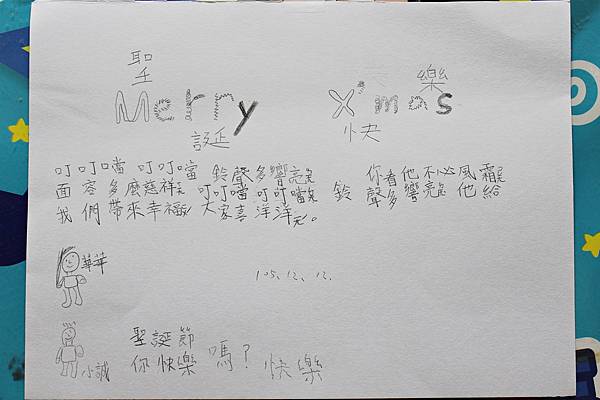 聖 樂
Merry X'mas
誕 快
叮叮噹 叮叮噹 鈴聲多響亮 你看他不必風霜
面容多麼慈祥 叮叮噹 叮叮噹 鈴聲多響亮 他給
我們帶來幸福 大家喜洋洋。
華華
105.12.12.
聖誕節
你快樂嗎？快樂
小誠